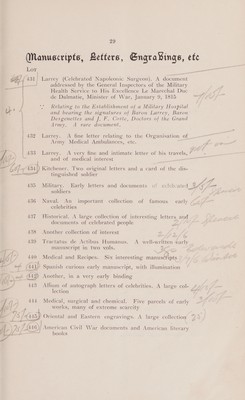 29
Manuscripts, Letters, Engravings, etc
Lot
431 Larrey (Celebrated Napoleonic Surgeon). A document
addressed by the General Inspectors of the Military
Health Service to His Excellence Le Marechal Duc
de Dalmatia, Minister of War, January 8, 1815
Relating to the Establishment of a Military Hospital
and bearing the signatures of Baron Larrey, Baron
Desgenettes and J. F. Coste, Doctors of the Grand
Army. A rare document.
432 Larrey. A fine letter relating to the Organisation of
Army Medical Ambulances, etc.
433 Larrey. A very fine and intimate letter of his travels,
and of medical interest
434 Kitchener. Two original letters and a card of the dis-
tinguished soldier
435 Military. Early letters and documents of celebrated
soldiers
436 Naval. An important collection of famous early
celebrities
437 Historical. A large collection of interesting letters and
documents of celebrated people
438 Another collection of interest
439 Tractatus de Actibus Humanus. A well-written early
manuscript in two vols.
440 Medical and Recipes. Six interesting manuscripts
441 Spanish various early manuscript, with illumination
442 Another, in a very early binding
443 Album of autograph letters of celebrities. A large col-
lection
444 Medical, surgical and chemical. Five parcels of early
works, many of extreme scarcity
445 Oriental and Eastern engravings. A large collection
446 American Civil War documents and American literary
books